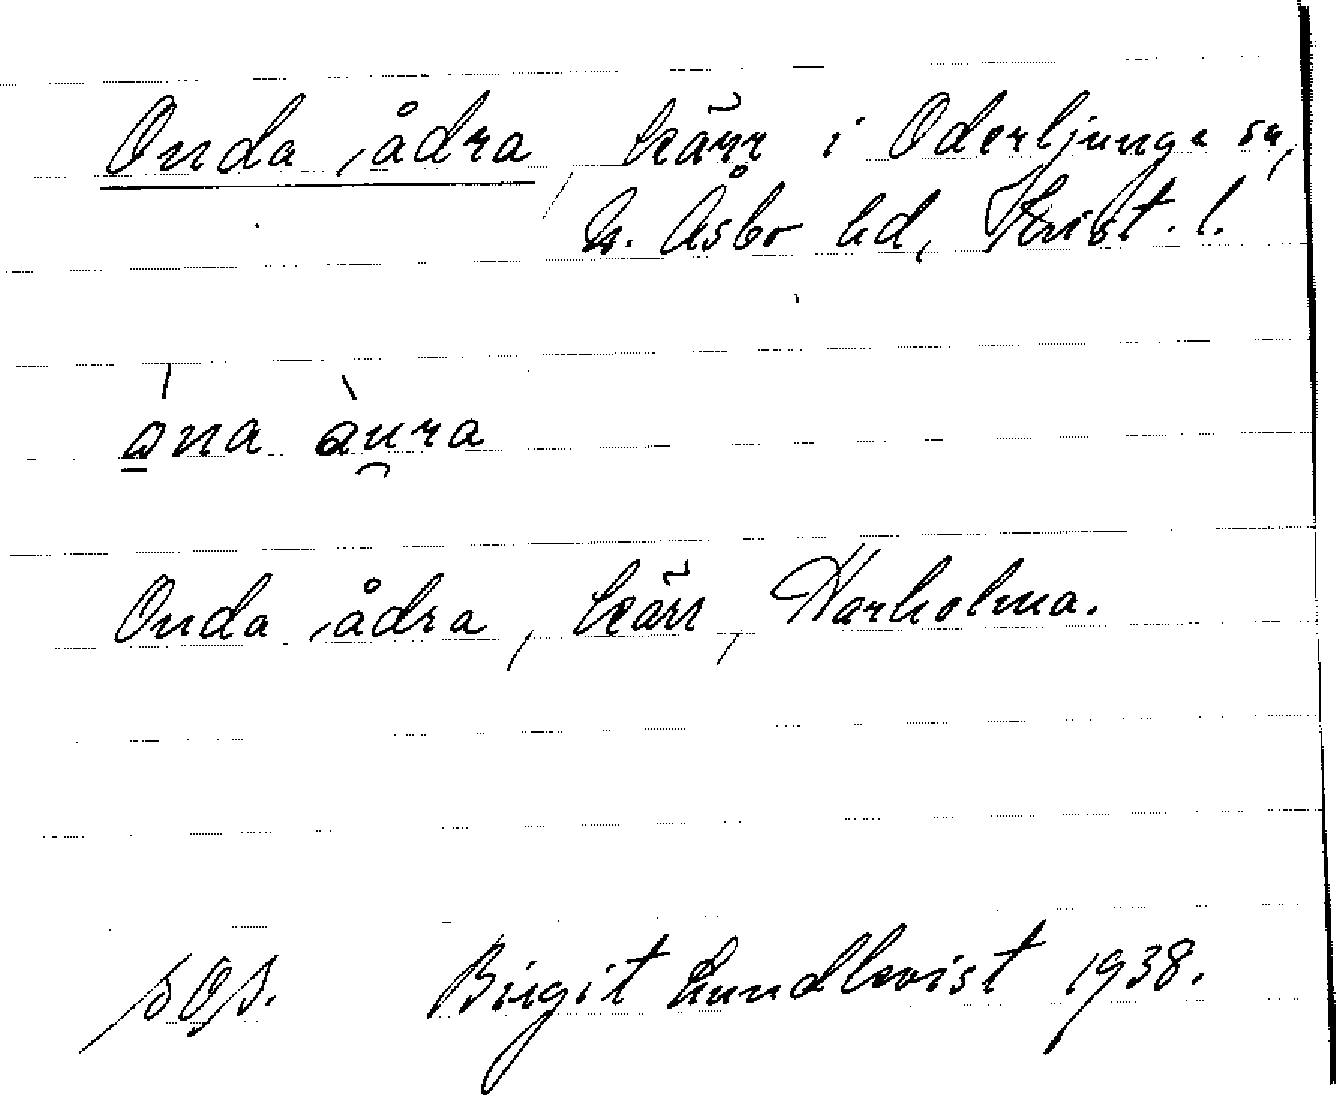 Onda ådra, kärr i Oderljunga sn,
N. Åsbo hd, Krist. l.
ána àu̯ra
Onda ådra, kärr, Harholma.
SOS. Birgit Lundkvist 1938.